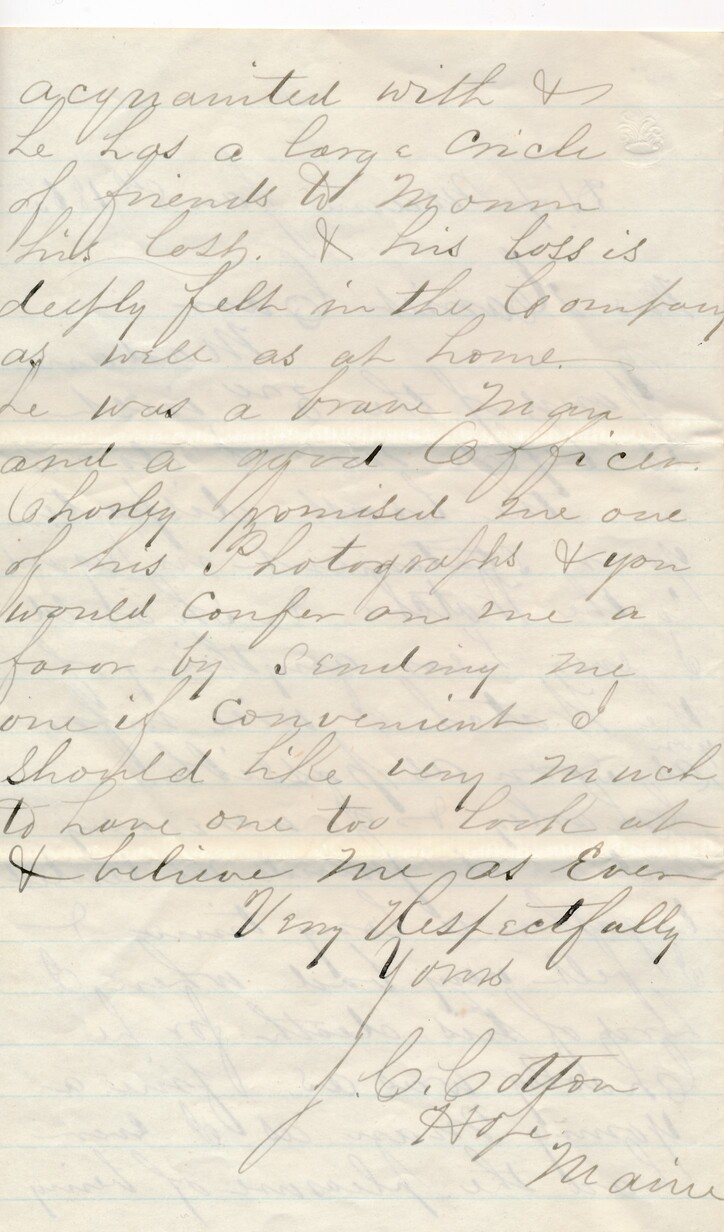 acquainted with &
he has a large circle
of friends to mourn
his lost. & his loss is
deeply felt in the Company
as well as at home.
he was a brave Man
and a good Officer.
Charley promised me one
of his Photographs & you
would confer on me a
favor by sending me
one if convenient I
should like very much
to have one too look at
& believe me as Ever
Very Respectfully
Yours
J. C. Cotton
Hope
Maine